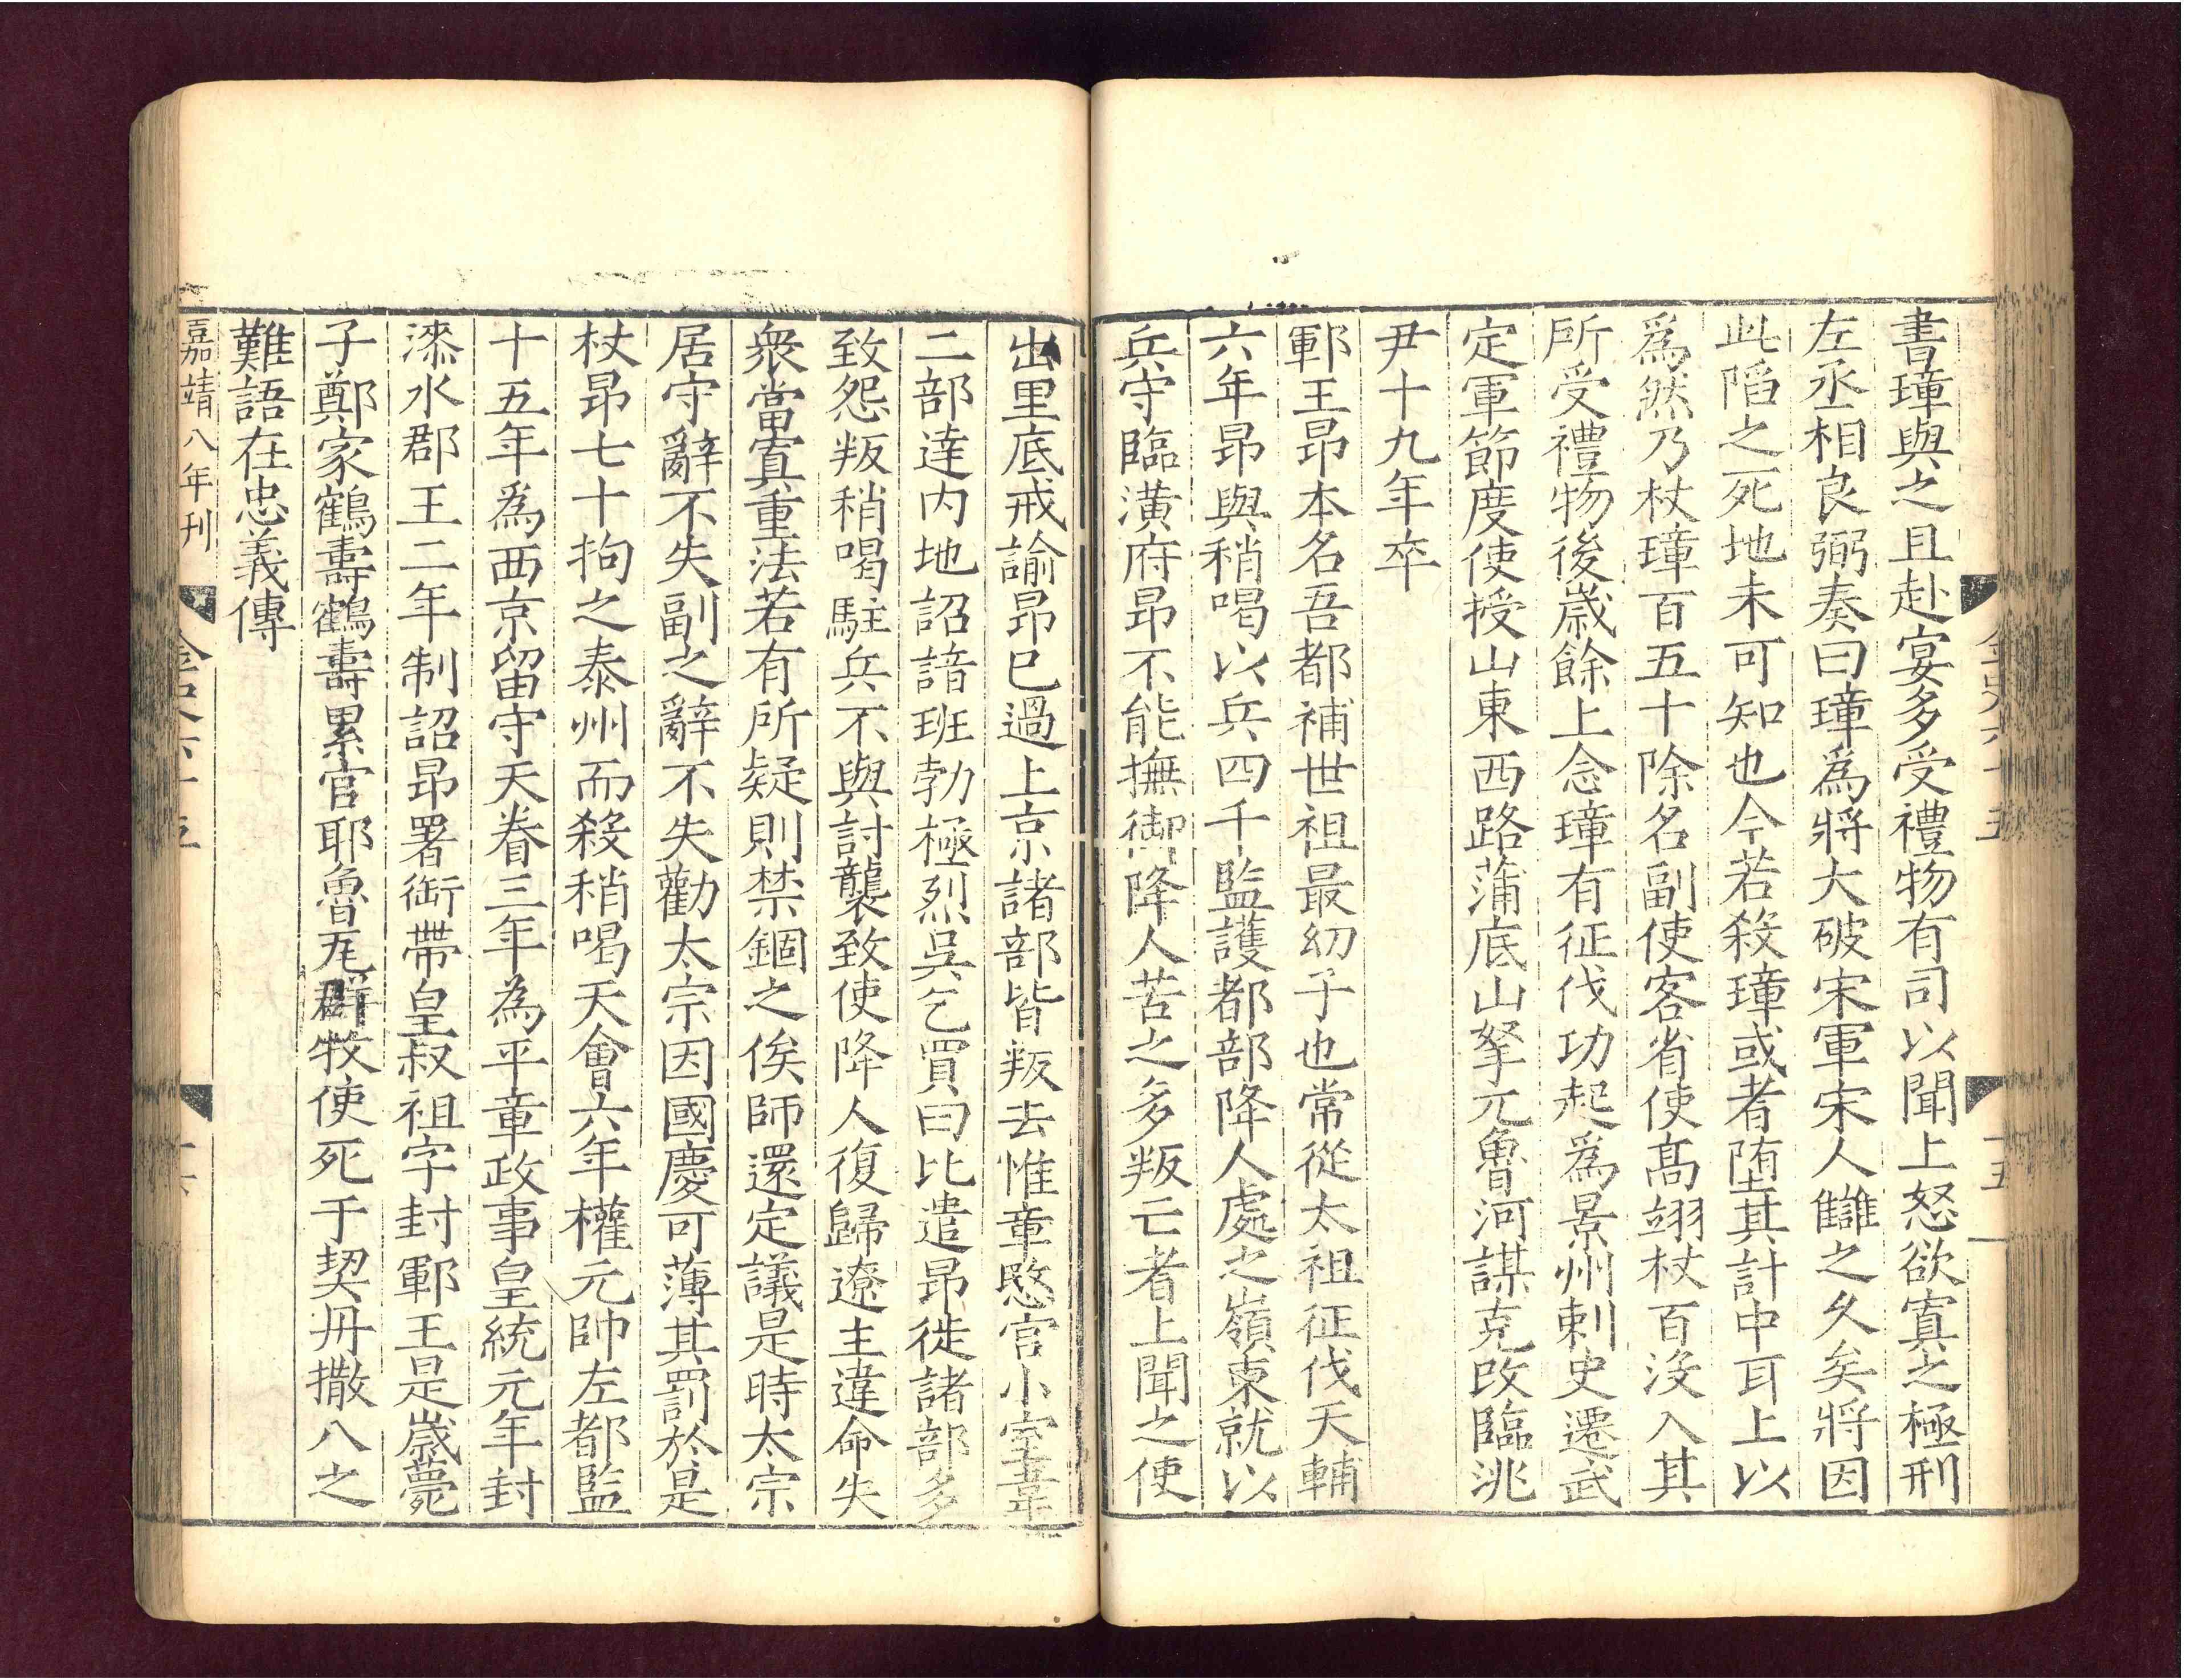 書璋與之且赴宴多受禮物有司以聞上怒欲寘之極刑
左丞相良弼奏曰璋爲將大破宋軍宋人讎之久矣將因
此陷之死地未可知也今若殺璋或者墮其計中耳上以
爲然乃杖璋百五十除名副使客省使髙翊杖百没入其
所受禮物後歳餘上念璋有征伐功起爲景州刺史遷武
定軍節度使授山東西路蒲底山拏兀魯河謀克改臨洮
尹十九年卒
鄆王昻本名吾都補世祖最幼子也常從太祖征伐天輔
六年昻與稍喝以兵四千監護都部降人處之嶺東就以
兵守臨潢府昻不能撫御降人苦之多叛亡者上聞之使
出里底戒諭昻已過上京諸部皆叛去惟章愍宫小室韋
二部達内地詔諳班勃極烈吳乞買曰比遣昻徙諸部多
致怨叛稍喝駐兵不與討襲致使降人復歸遼主違命失
衆當寘重法若有所疑則禁錮之俟師還定議是時太宗
居守辭不失副之辭不失勸太宗因國慶可薄其罰於是
杖昻七十拘之泰州而殺稍喝天會六年權元帥左都監
十五年爲西京留守天眷三年為平章政事皇統元年封
漆水郡王二年制詔昻署銜帶皇叔祖字封鄆王是歳薨
子鄭家鶴壽鶴壽累官耶魯瓦群牧使死于契丹撒八之
難語在忠義傳
嘉靖八年刊
金史六十五
十六
金史六十五
十五